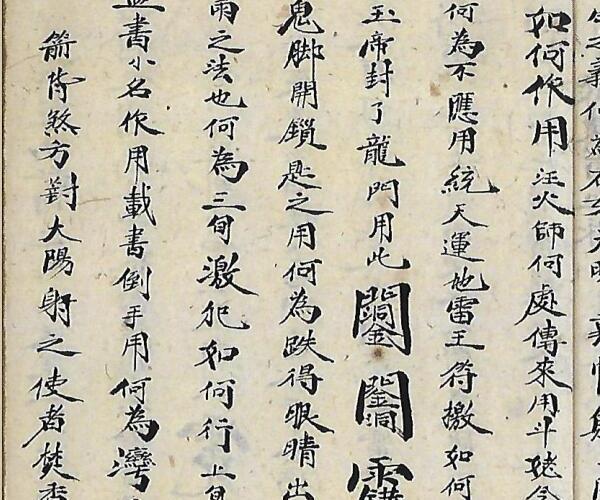 如何作用汪火師何處傳來用斗姥
何為不應用統天運地雷王符檄如何
玉帝封了龍門用此
鬼脚開鎖匙之用何為跌得眼晴出
雨之法也何為三旬激犯如何行上
書小名作用載書倒手用何為灣
箭煞方對大陽射之使者焚香